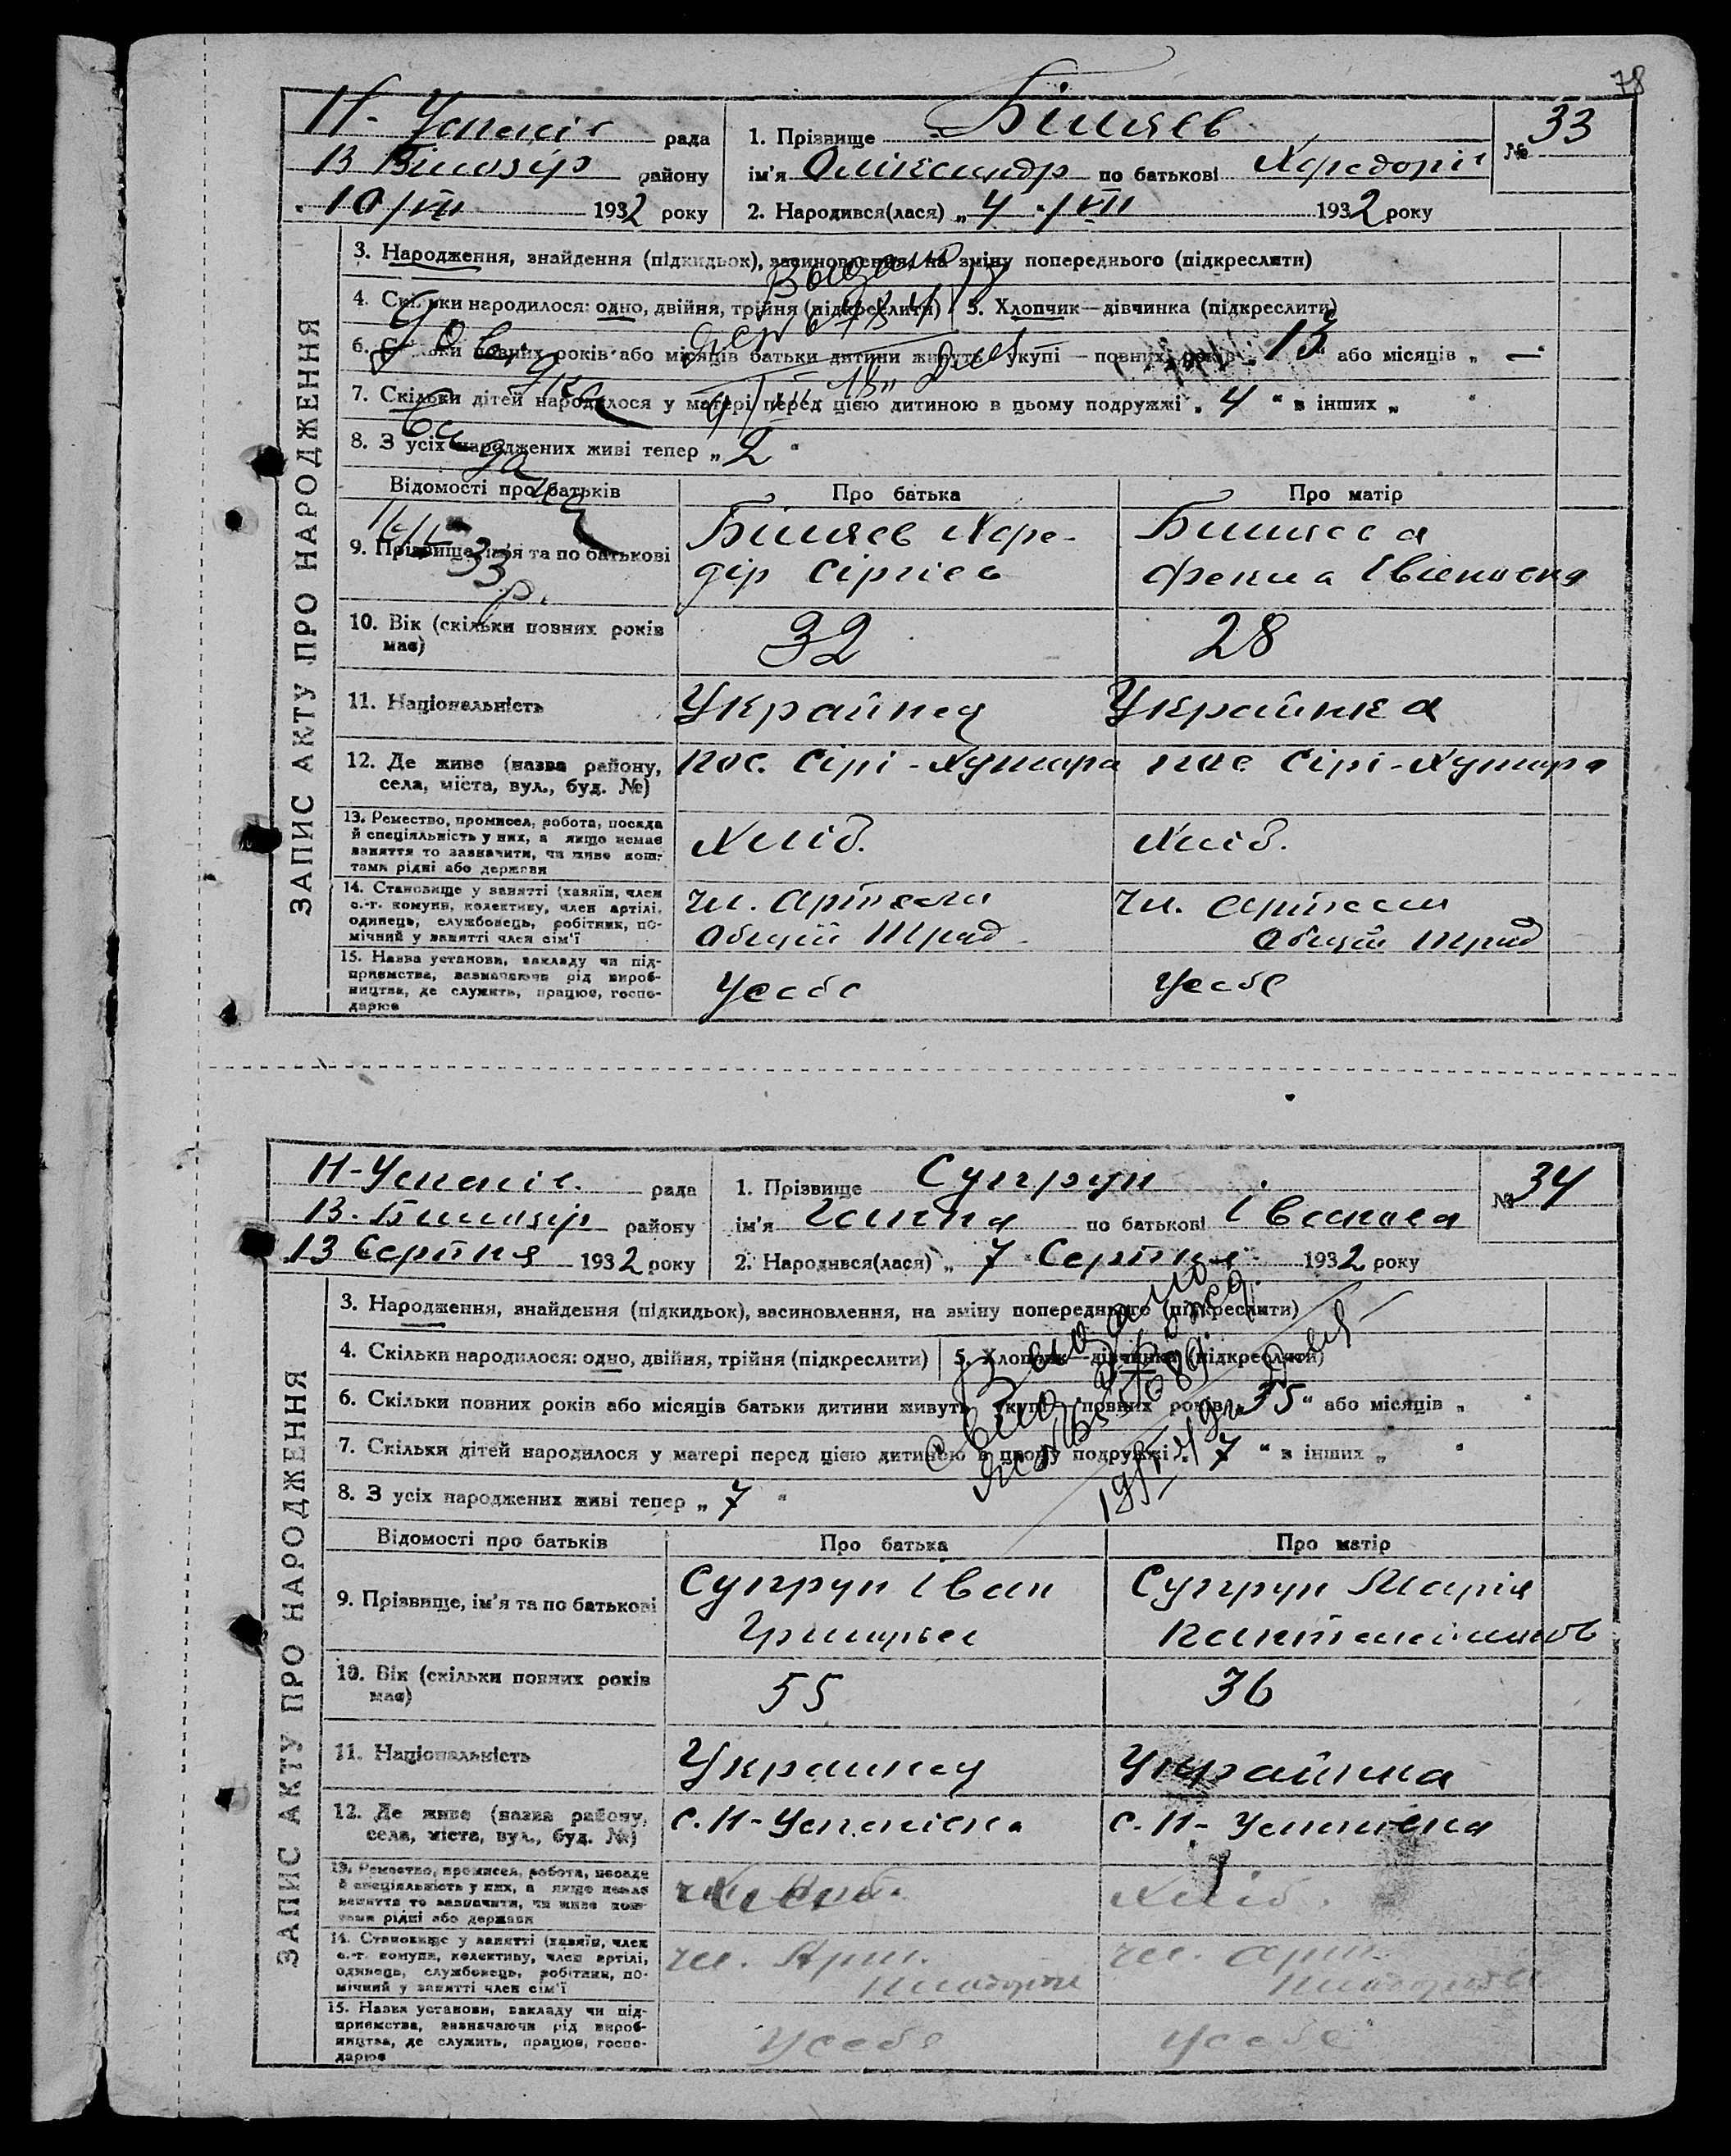 78
Н- Успеніє рада
В Білозір району
10/VIII 1932 року
1. Прізвище Біляєв
ім'я Олександр по батькові Хфедорів
№ 33
2. Народився(лася) „ 4 "/VIII 1932 року
ЗАПИС АКТУ ПРО НАРОДЖЕННЯ
3. Народження, знайдення (підкидьок), засиновлення, на зміну попереднього (підкреслити)
4. Скільки народилося: одно, двійня, трійня (підкреслити) 5. Хлопчик—дівчинка (підкреслити)
6. Скільки повних років або місяців батьки дитини живуть укупі — повних років „ 13 " або місяців „ — "
7. Скільки дітей народилося у матері перед цією дитиною в цьому подружжі „ 4 " в інших „ "
8. З усіх народжених живі тепер „ 2 "
Довідка
видана
33 р.
Відомості про батьків Про батька Про матір
9. Прізвище, ім'я та по батькові
Біляєв Хфе-
дір Сіргієв
Біляєва
Фекла
10. Вік (скільки повних років має) 32 28
11. Національність Українец Українка
12. Де живе (назва району, села, міста, вул., буд. №) пос. Сірі-Хутора пос Сірі-Хутора
13. Ремество, промисел, робота, посада й спеціяльність у них, а якщо немає заняття то зазначити, чи живе коштами рідні або держави Хліб. Хліб.
14. Становище у занятті (хазяїн, член с.-г. комуни, колективу, член артілі, одинець, службовець, робітник, помічний у занятті член сім'ї
чл. артели
Общій труд
чл. артели
Общій труд
15. Назва установи, закладу чи підприємства, зазначаючи рід виробництва, де служить, працює, господарює Усебе Усебе
Н-Успеніє. рада
В. Білозір району
13 Серпня 1932 року
1. Прізвище Супрун
ім'я Ганна по батькові Іванова
№ 34
2. Народився(лася) „ 7 " Серпня 1932 року
ЗАПИС АКТУ ПРО НАРОДЖЕННЯ
3. Народження, знайдення (підкидьок), засиновлення, на зміну попереднього (підкреслити)
4. Скільки народилося: одно, двійня, трійня (підкреслити) 5. Хлопчик—дівчинка (підкреслити)
6. Скільки повних років або місяців батьки дитини живуть укупі — повних років „ 35 " або місяців „ "
7. Скільки дітей народилося у матері перед цією дитиною в цьому подружжі „ 7 " в інших „ "
8. З усіх народжених живі тепер „ 7 "
Відомості про батьків Про батька Про матір
9. Прізвище, ім'я та по батькові
Супрун Іван
Супрун Марія
10. Вік (скільки повних років має) 55 36
11. Національність Украинец Українка
12. Де живе (назва району, села, міста, вул., буд. №) с. Н-Успенієка с. Н-Успенієка
13. Ремество, промисел, робота, посада й спеціяльність у них, а якщо немає заняття то зазначити, чи живе коштами рідні або держави Хліб.
14. Становище у занятті (хазяїн, член с.-г. комуни, колективу, член артілі, одинець, службовець, робітник, помічний у занятті член сім'ї
чл. Арт.
чл. арт.
15. Назва установи, закладу чи підприємства, зазначаючи рід виробництва, де служить, працює, господарює Усебе Усебе